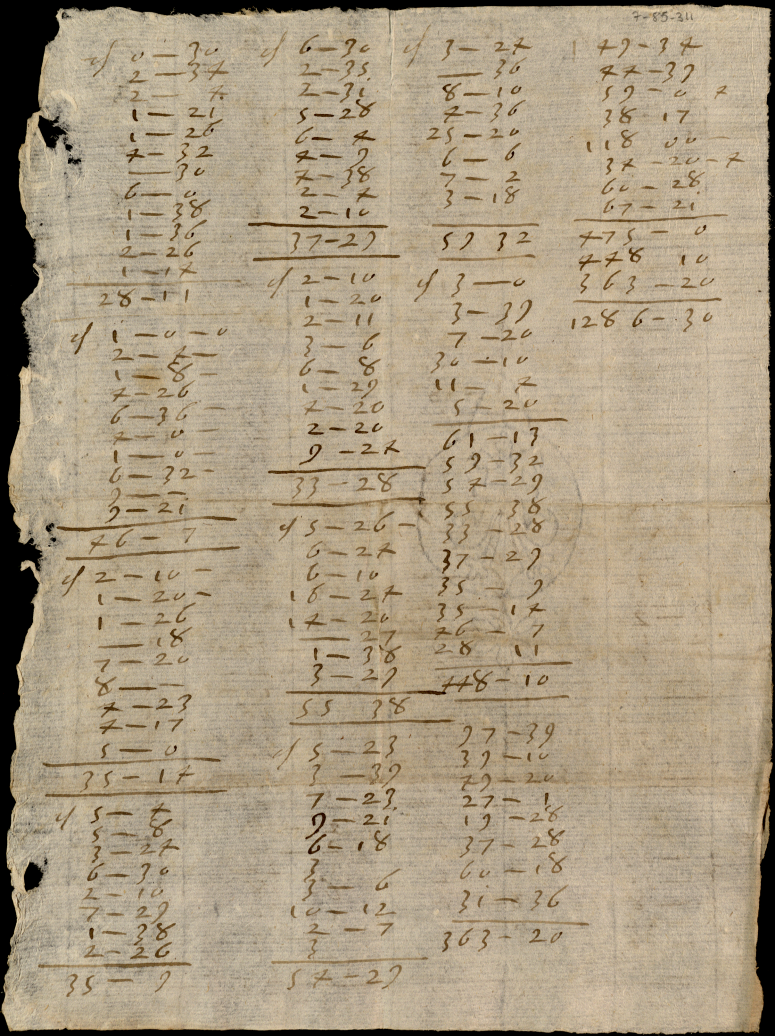 7-85-311
of 0 — 30
2 — 34
2 — 4
1 — 21
1 — 26
4 — 32
— 30
6 — 0
1 — 38
1 — 36
2 — 26
1 — 14
28 — 11
of 1 — 0 — 0
2 — 4 —
1 — 8 —
4 — 26
6 — 36 —
4 — 0 —
1 — 0 —
6 — 32 —
9 — —
9 — 21
46 — 7
of 2 — 10 —
1 — 20 —
1 — 26
— 18
7 — 20
8 — —
4 — 23
4 — 17
5 — 0
35 — 14
of 5 — 4
5 — 8
3 — 24
6 — 30
2 — 10
7 — 29
1 — 38
2 — 26
35 — 9
of 6 — 30
2 — 35
2 — 31
5 — 28
6 — 4
4 — 9
4 — 38
2 — 4
2 — 10
37 — 29
of 2 — 10
1 — 20
2 — 11
3 — 6
6 — 8
1 — 29
4 — 20
2 — 20
9 — 24
33 — 28
of 5 — 26 —
6 — 24
6 — 10
16 — 24
14 — 20
— 27
1 — 38
3 — 29
55 38
of 5 — 23
3 — 39
7 — 23
9 — 21
6 — 18
3
3 — 6
10 — 12
2 — 7
3
54 — 29
of 3 — 24
— 36
8 — 10
4 — 36
25 — 20
6 — 6
7 — 2
3 — 18
59 32
of 3 — 0
3 — 39
7 — 20
30 — 10
11 — 4
5 — 20
61 — 13
59 — 32
54 — 29
55 38
33 — 28
37 — 29
35 — 9
35 — 14
46 — 7
28 11
448 — 10
97 — 39
39 — 10
49 — 20
27 — 1
19 — 28
37 — 28
60 — 18
31 — 36
363 — 20
49 — 34
44 — 39
59 — 0 4
38 17
118 00 —
34 — 20 — 4
60 — 28
67 — 21
475 — 0
448 10
363 — 20
1286 — 30